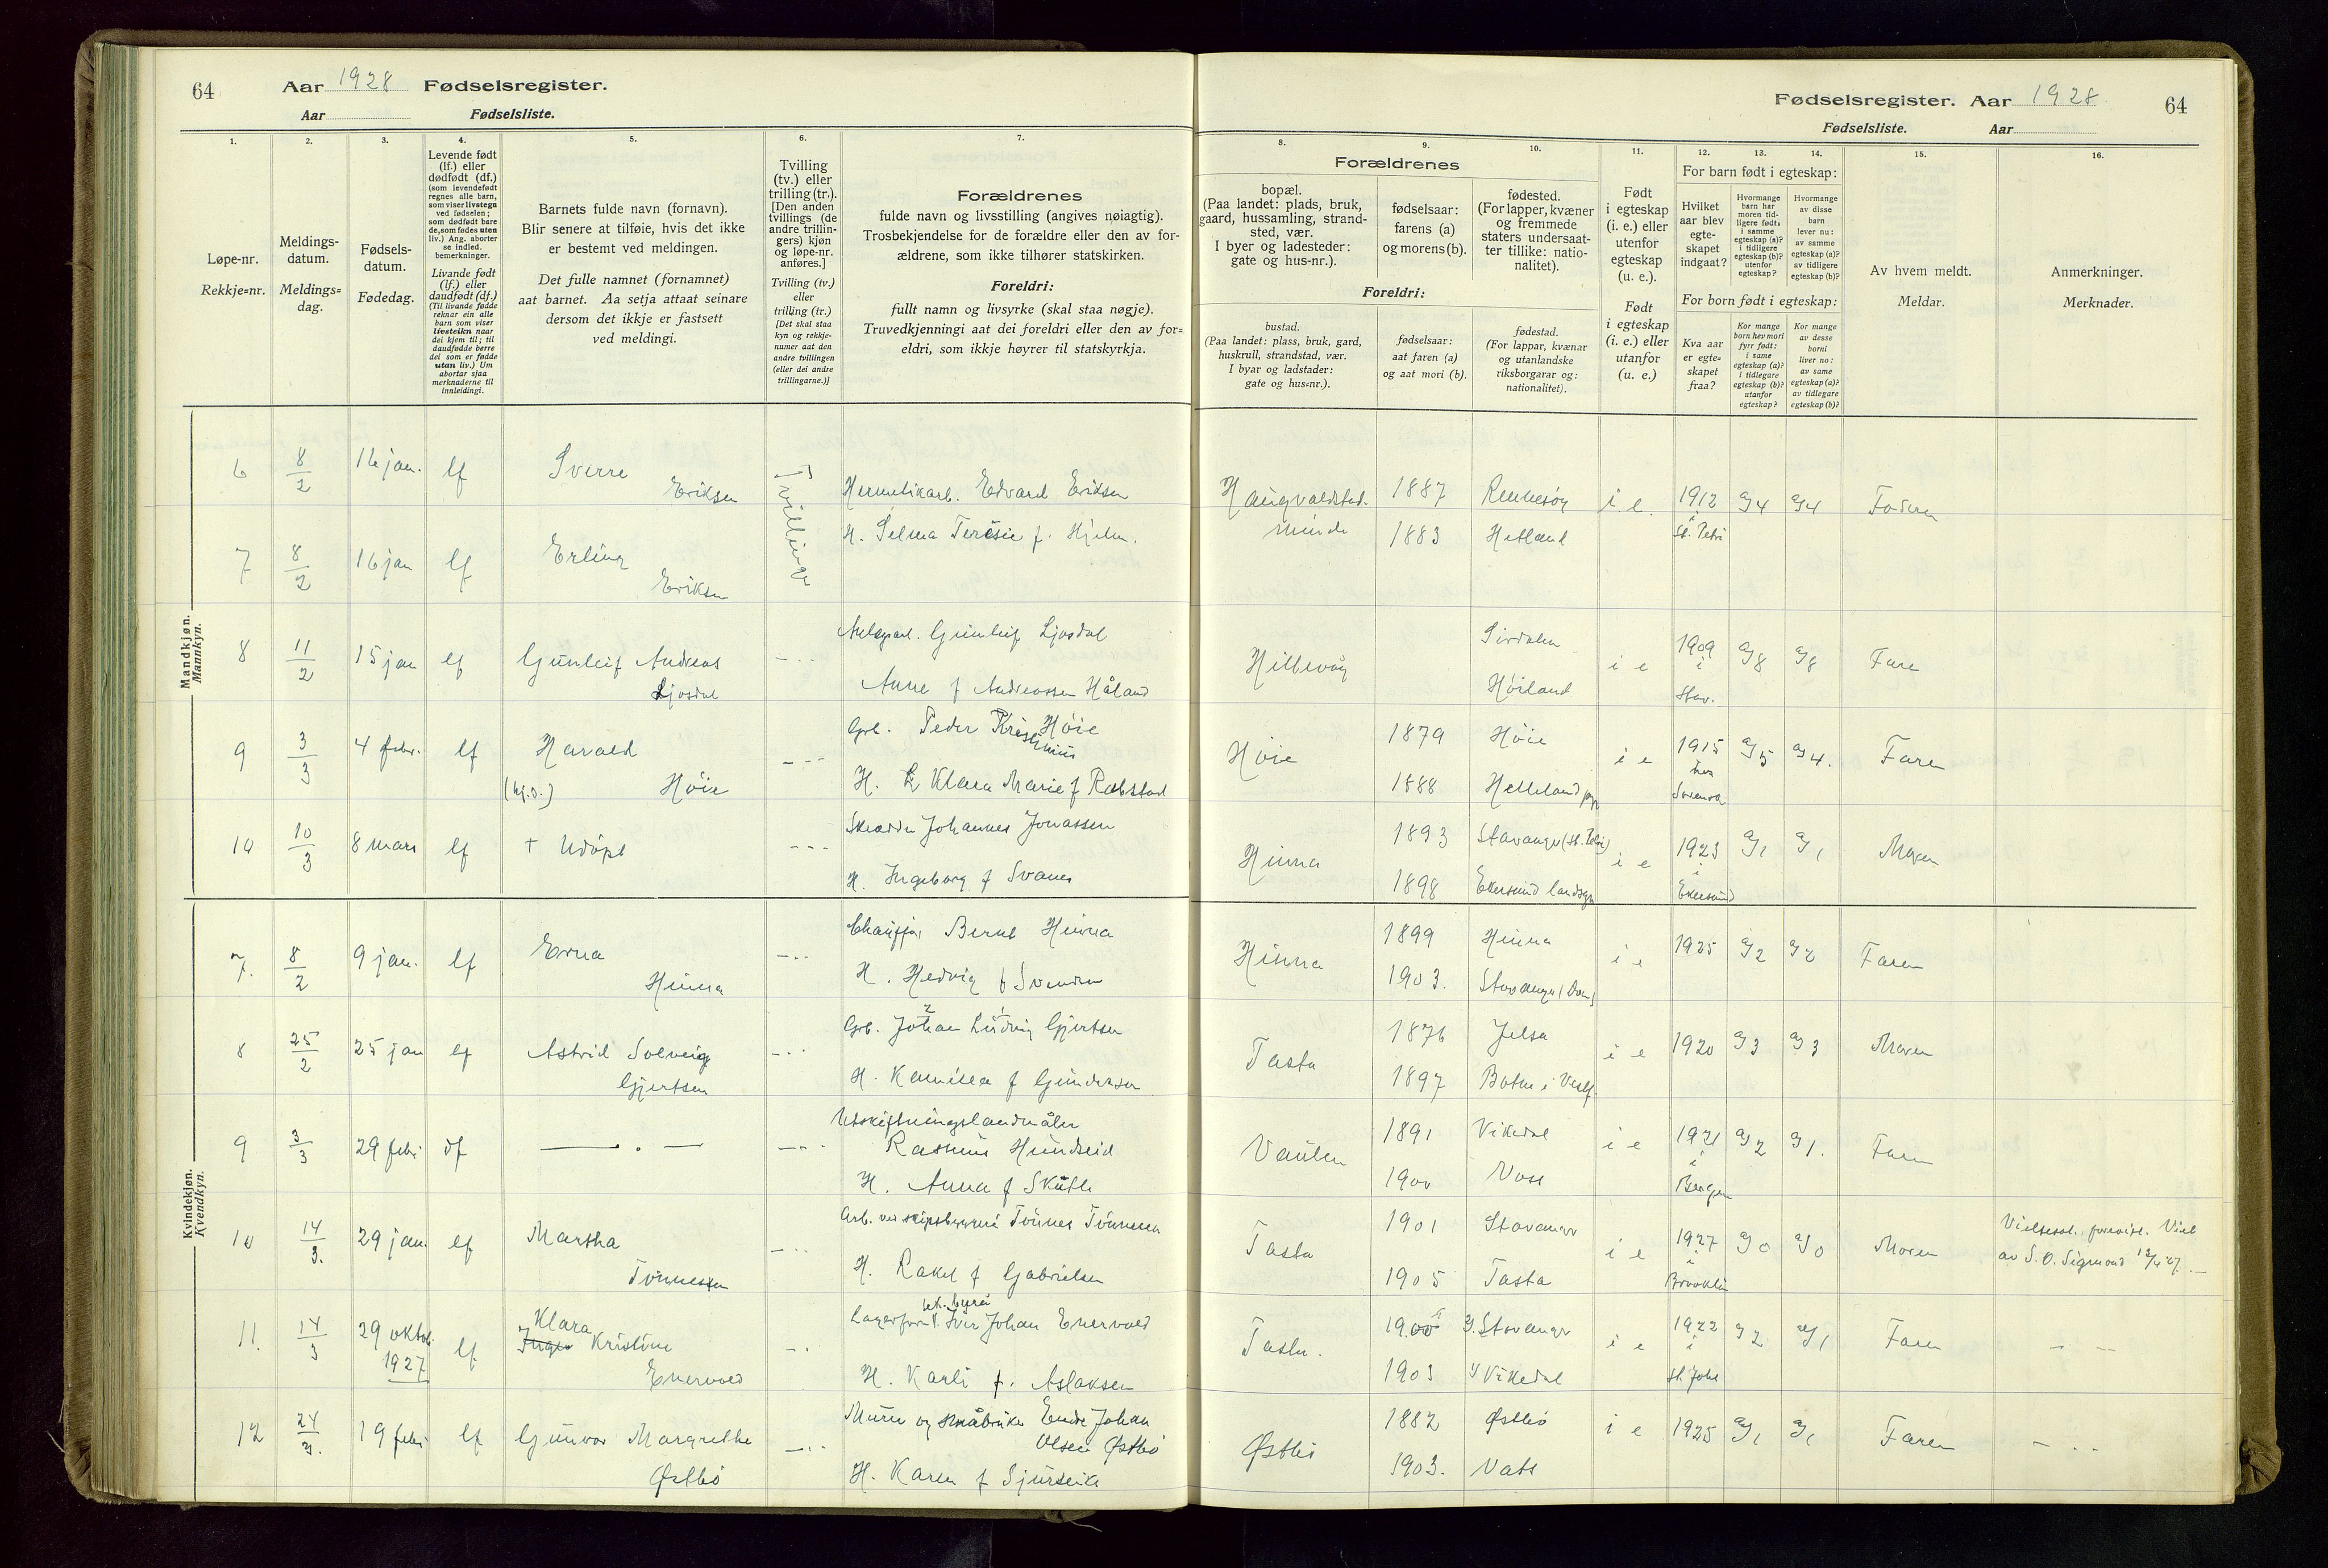 64
Aar 1928 Fødselsregister.
Aar Fødselsliste.
1.
2.
3.
4.
5.
6.
7.
Løpe-nr.
Rekkje=nr.
Meldings-
datum.
Meldings=
dag.
Fødsels-
datum.
Fødedag.
Levende født
(lf.) eller
dødfødt (df.)
(som levendefødt
regnes alle barn,
som viser livstegn
ved fødselen;
som dødfødt bare
de, som fødes uten
liv.) Ang. aborter
se indled.
bemerkninger.
Livande født
(lf.) eller
daudfødt (df.)
(Til livande fødde
reknar ein alle
barn som viser
livsteikn naar
dei kjem til; til
daudfødde berre
dei som er fødde
utan liv.) Um
abortar sjaa
merknaderne til
innleidingi.
Barnets fulde navn (fornavn).
Blir senere at tilføie, hvis det ikke
er bestemt ved meldingen.
Det fulle namnet (fornamnet)
aat barnet. Aa setja attaat seinare
dersom det ikkje er fastsett
ved meldingi.
Tvilling
(tv.) eller
trilling (tr.).
[Den anden
tvillings (de
andre trillin-
gers) kjøn
og løpe-nr.
anføres.]
Tvilling (tv.)
eller
trilling (tr.)
[Det skal staa
kyn og rekkje-
numer aat den
andre tvillingen
(eller dei andre
trillingarne.)]
Forældrenes
fulde navn og livsstilling (angives nøiagtig).
Trosbekjendelse for de forældre eller den av for-
ældrene, som ikke tilhører statskirken.
Foreldri:
fullt namn og livsyrke (skal staa nøgje).
Truvedkjenningi aat dei foreldri eller den av for=
eldri, som ikkje høyrer til statskyrkja.
Fødselsregister. Aar 1928
64
Fødselsliste. Aar
8.
9.
10.
11.
12.
13.
14.
15.
16.
Forældrenes
bopæl.
(Paa landet: plads, bruk,
gaard, hussamling, strand-
sted, vær.
I byer og ladesteder:
gate og hus-nr.).
fødselsaar:
farens (a)
og morens (b).
fødested.
(For lapper, kvæner
og fremmede
staters undersaat-
ter tillike: natio-
nalitet).
Foreldri:
bustad.
(Paa landet: plass, bruk, gard,
huskrull, strandstad, vær.
I byar og ladstader:
gate og hus=nr.).
fødselsaar:
aat faren (a)
og aat mori (b).
fødestad.
(For lappar, kvænar
og utanlandske
riksborgarar og:
nationalitet).
Født
i egteskap
(i. e.) eller
utenfor
egteskap
(u. e.).
Født
i egteskap
(i. e.) eller
utanfor
(u. e.)
For barn født i egteskap:
Hvilket
aar blev
egte-
skapet
indgaat?
Hvormange
barn har
moren tid-
ligere født:
i samme
egteskap (a)?
i tidligere
egteskap (b)?
utenfor
egteskap?
Hvormange
av disse
barn
lever nu:
av samme
egteskap (a)?
av tidligere
egteskap (b)?
For born født i egteskap:
Kva aar
er egte-
skapet
fraa?
Kor mange
born hev mori
fyrr født:
i same
egteskap (a)?
i tidlegare
egteskap (b)?
utanfor
egteskap?
Kor mange
av desse
borni
liver no:
av same
egteskap (a)?
av tidlegare
egteskap (b)?
Av hvem meldt.
Meldar.
Anmerkninger.
Merknader.
Mandkjøn.
Mannkyn.
6 8/2 16 jan. lf Sverre Eriksen Tvillinger Hermetikarb. Edvard Eriksen Haugvaldstad 1887 Rennesøy i. e. 1912 a/4 a/4 Faderen
H. Selma Teresie f. Hjelm. minde 1883 Hetland St. Petri
7 8/2 16 jan lf Erling Eriksen
8 11/2 15 jan lf Gunleif Andreas Ljosdal Gunleif Ljosdal Hillevåg Sirdalen i e 1909 i Stav. a/8 a/8 Faren
Anne f Andreassen Håland Høiland
9 3/3 4 febr. lf Harald Høie Grb. Peder Kristinius Høie Høie 1879 Høie i e 1915 a/5 a/4. Faren
H. Klara Marie f Rabstad 1888 Helleland
10 10/3 8 mars lf + Udøpt Skrædder Johannes Jonassen Hinna 1893 Stavanger (St. Petri) i e 1923 i Ekersund a/1 a/1 Moren
H. Ingeborg f Svanes 1898 Ekersund landsgn
Kvindekjøn.
Kvendkyn.
7. 8/2 9 jan. lf Erna Hinna Chauffør Bernt Hinna Hinna 1899 Hinna i e 1925 a/2 a/2 Faren
H. Hedvig f Svendsen 1903. Stavanger (Dom)
8 25/2 25 jan lf Astrid Solveig Gjertsen Grb. Johan Ludvig Gjertsen Tasta 1876 Jelsa i e 1920 a/3 a/3 Moren
H. Kamilla f Gundersen 1897 Botne i Vestf.
9 3/3 29 febr df — . — Utskiftningslandmåler
Rasmus Hundseid Vaulen 1891 Vikedal i e 1921 i Bergen a/2 a/1. Faren
H. Anna f Skutle 1900 Voss
10 14/3. 29 jan. lf Martha Tønnessen Arb. ved skipsbyggeri Tønnes Tønnessen Tasta 1901 Stavanger i e 1927 i Brooklin a/0 a/0 Moren Vielsesat. forevist. Viet
H. Rakel f Gabrielsen 1905 Tasta av S. O. Sigmond 12/4 27.
11. 14/3 29 oktob. 1927 lf Klara Kristine Enervold Iver Johan Enervold Tasta. 1900 Stavanger i e 1922 i St. Joh. a/2 a/1 Faren
H. Karli f. Aslaksen 1903 Vikedal
12 24/3. 19 febr lf Gunvor Margrethe Østbø Murer og småbruker Endre Johan
Olsen Østbø Østbø 1882 Østbø i e 1925 a/1 a/1 Faren
H. Karen f Sjurseike 1903. Vats